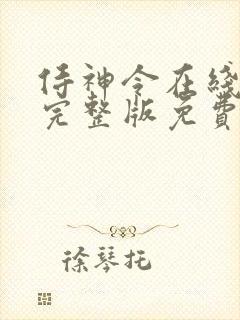 侍神令在綫
完整版免費
徐琴托